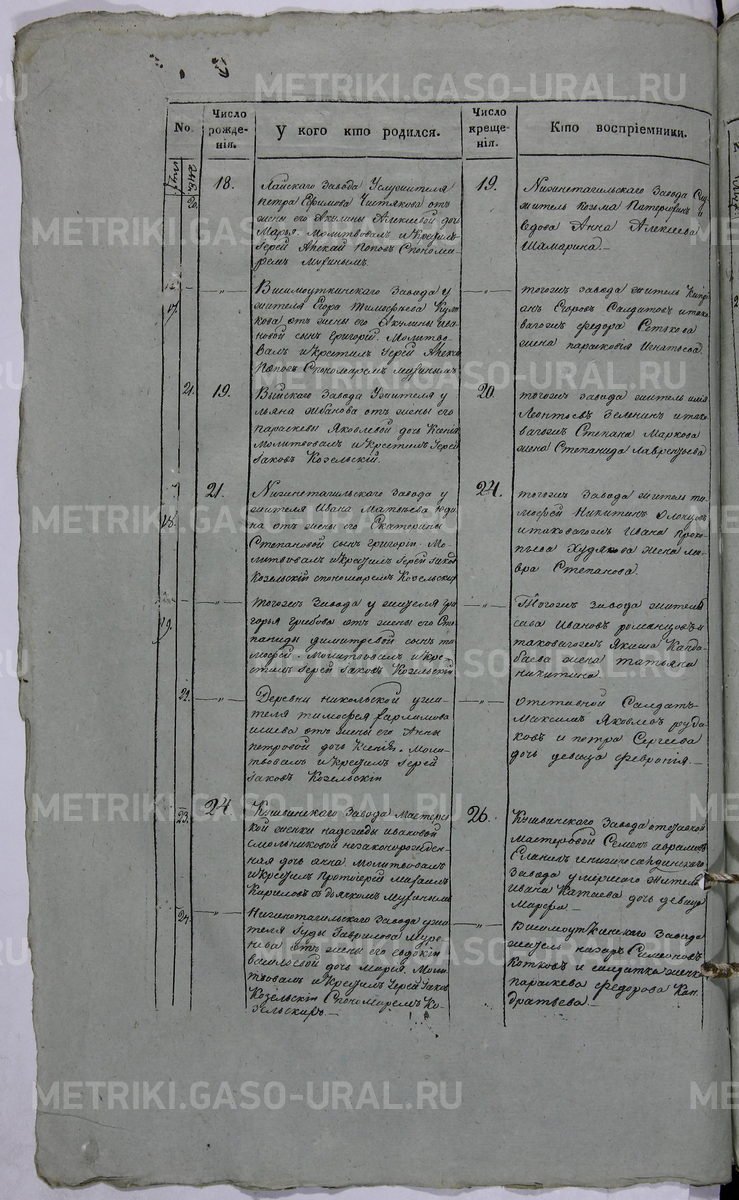 No.
Число рожде-нія.
У кого кто родился.
Число креще-нія.
Кто воспріемники.
муж.
18.
Лайскаго Завода Услужителя
петра Ефимова Чистякова отъ
жены его Акилины Алексіевой дочь
Марья. Молитвовалъ и крестилъ
Іерей Алексій Поповъ Спонома-
ремъ Музинымъ.
19.
Нижнетагильскаго Завода Слу-
житель Козьма
Анна Алексіева
Шамарина
17.
Висимоуткинскаго Завода у
жителя Егора Тимофѣева Кули-
кова отъ жены его Акулины Ива-
новой сынъ Григорій. Молитво-
валъ и крестилъ Іерей Алексій
Поповъ Спономаремъ Музинымъ
тогожъ завода житель Кипрі-
анъ Егоровъ Солдатовъ и тако-
вагожъ федора Сетякова
жена парасковія Игнатьева
21.
19.
Выйскаго Завода Ужителя у
льяна Жбанова отъ жены его
параскевы Яковлевой дочь Ксенія
Молитвовалъ и Крестилъ Іерей
Іаковъ Козельскій.
20.
тогожъ завода житель илья
Леонтьевъ Зеленинъ и тако-
вагожъ Степана Маркова
жена Степанида Лаврентьева
18.
21.
Нижнетагильскаго Завода у
жителя Ивана Матвѣева Юди-
на отъ жены его Екатерины
Степановой сынъ григорій. Мо-
литвовалъ и крестилъ Іерей Іаковъ
Козельскій спономаремъ Козельским
24.
тогожъ Завода житель ти-
мофей Никитинъ
и таковагожъ Ивана Проко-
пьева Худякова жена Ма-
вра Степанова.
19.
тогожъ Завода у жителя гри-
горья грибова отъ жены его Сте-
паниды димитревой сынъ ти-
мофей. Молитвовалъ и Кре-
стилъ Іерей Іаковъ Козельскій
Тогожъ завода житель
сава Ивановъ романцовъ и
таковагожъ Якима Канда-
баева жена татьяна
никитина
22.
Деревни никольской ужи-
теля тимофея
отъ жены его Анны
петровой дочь Ксенія. Моли-
твовалъ и крестилъ Іерей
Іаковъ Козельскій
отставной Салдатъ
Максимъ Яковлевъ руда-
ковъ и петра Сергеева
дочь девица февронія.
23.
24.
Кушвинскаго Завода мастерс-
кой женки надежды ивановой
смольниковой незаконорожден-
ная дочь анна. Молитвовалъ
и Крестилъ Протоіерей Михаилъ
Кириловъ съ дьячкомъ Музинымъ
26.
Кушвинскаго Завода отставной
мастеровой Семенъ аврамовъ
и нижнесалдинскаго
Завода умершаго жителя
Ивана Катаева дочь девица
Марфа
24.
Нижнетагильскаго Завода ужи-
теля Іуды Гаврилова Муро-
нова отъ жены его евдокіи
васильевой дочь Марія. Моли-
твовалъ и крестилъ Іерей Іаковъ
Козельскій Спономаремъ Ко-
зельскимъ.
Висимоуткинскаго Завода
житель назаръ Симеоновъ
Котковъ и солдатка женка
параскева федорова Кон-
дратьева.
METRIKI.GASO-URAL.RU